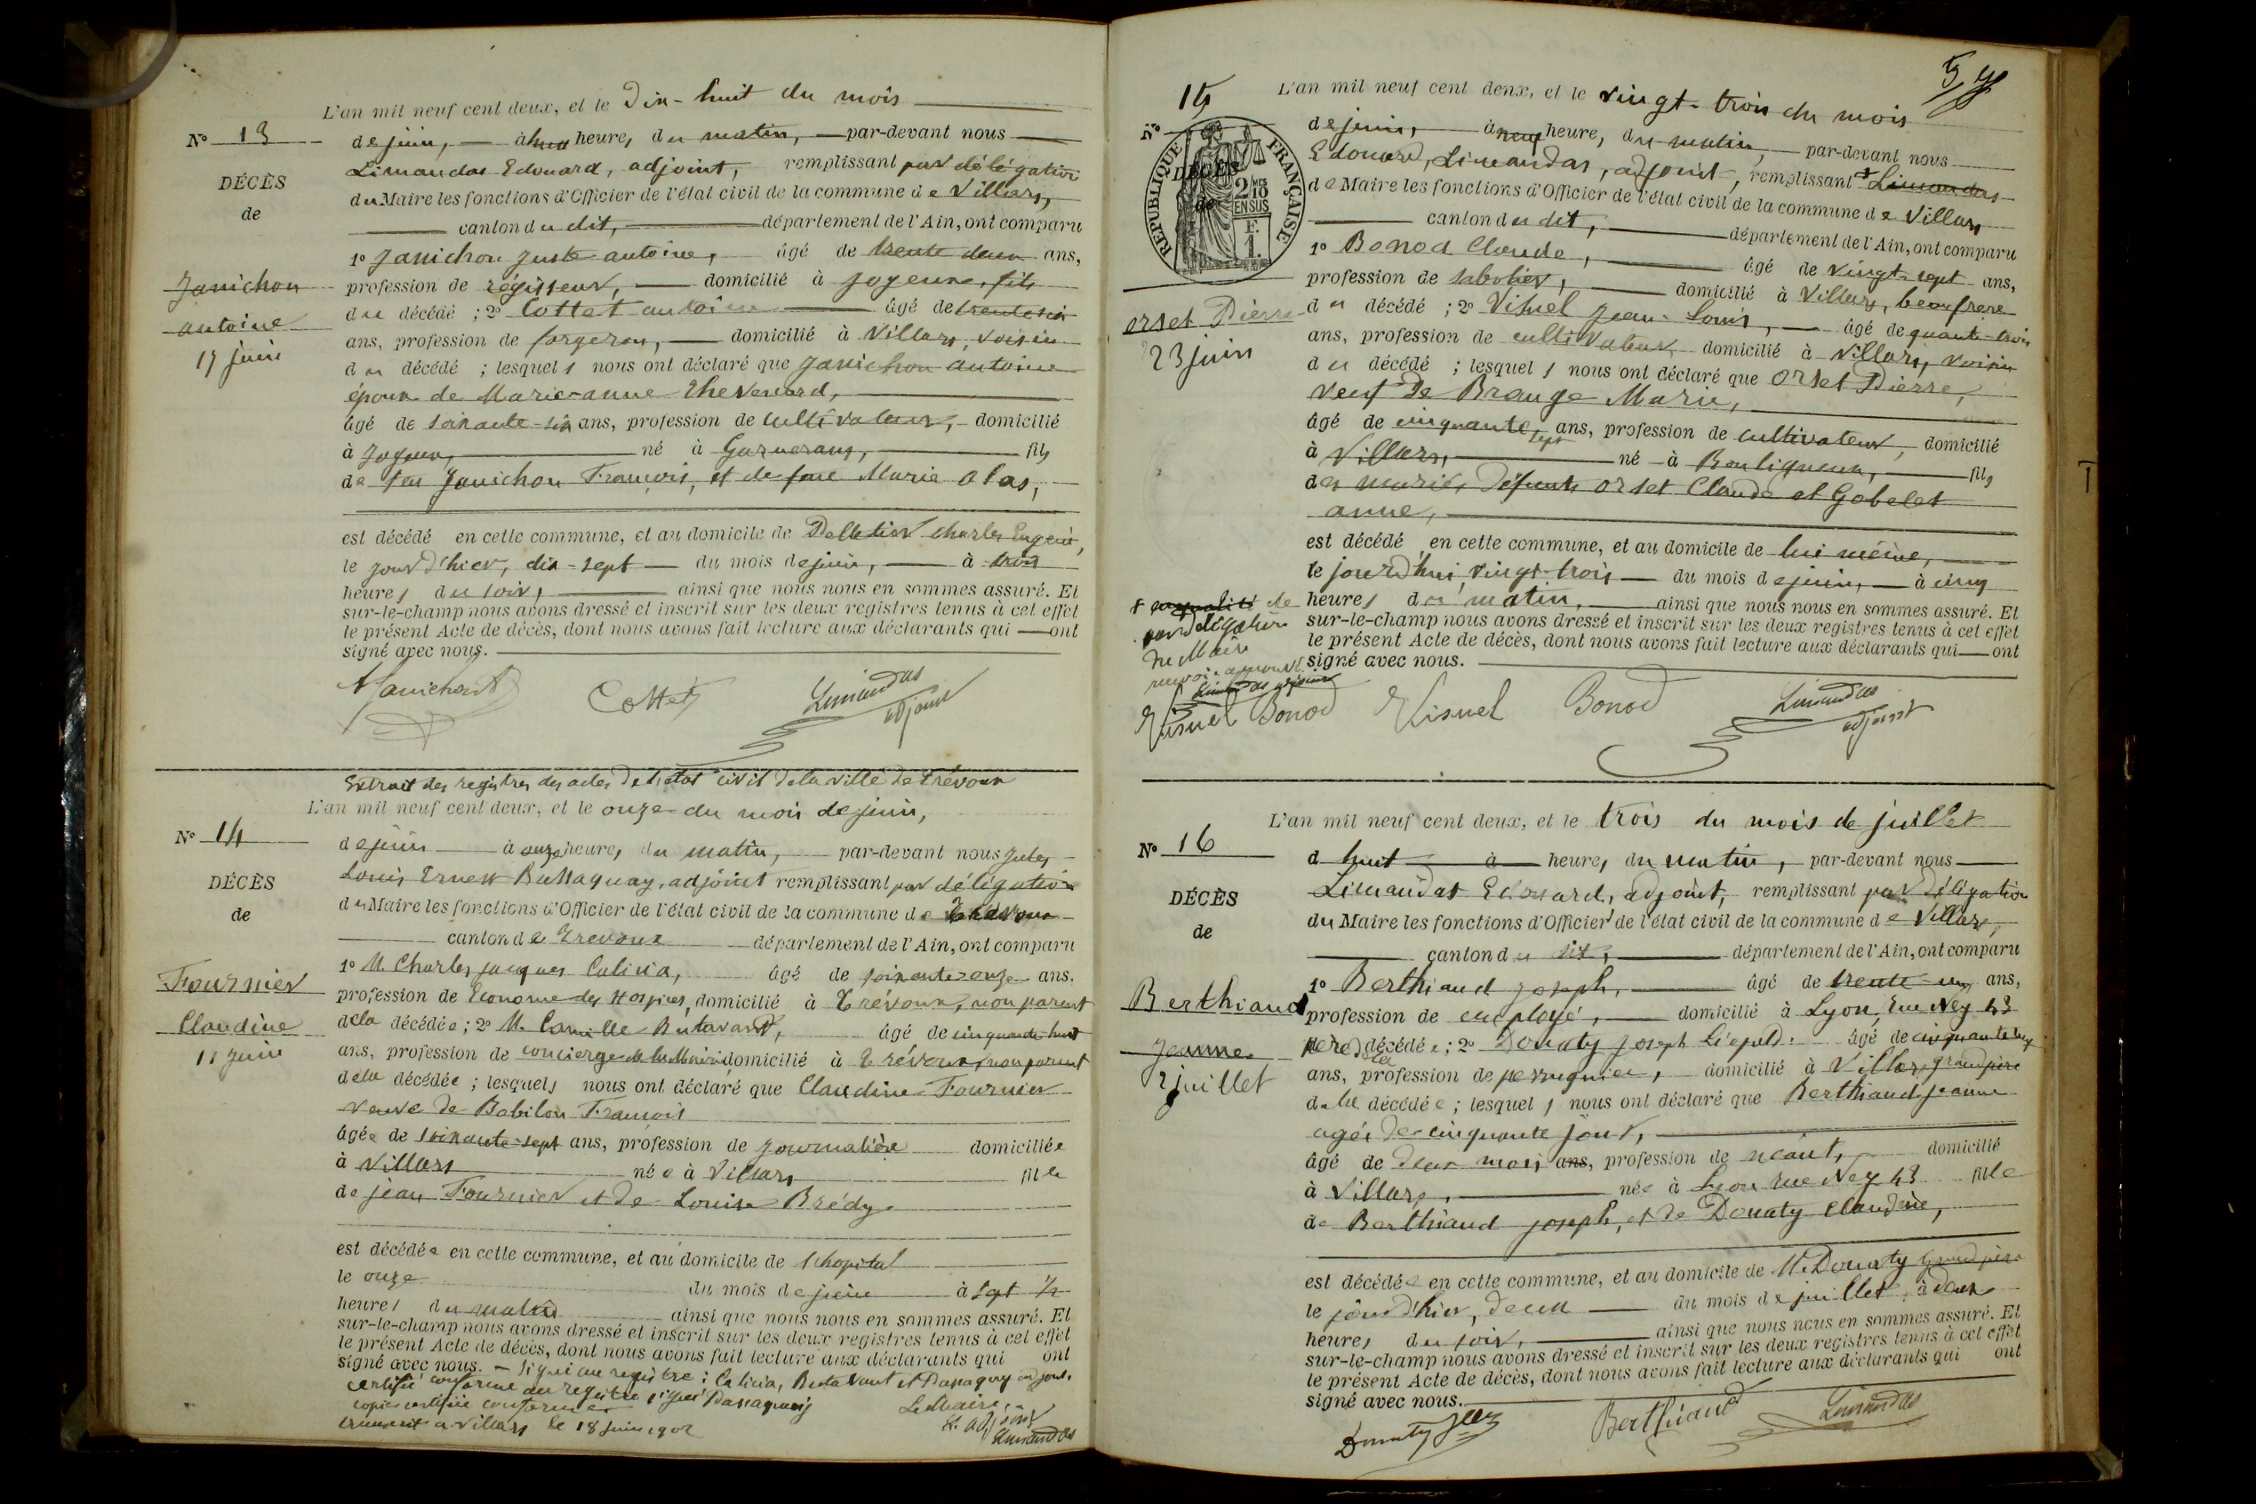 L'an mil neuf cent deux, et le Dix-huit du mois
N° 13
de juin, à heures du matin, par-devant nous
DÉCÈS
de
Limandas Edouard, adjoint, remplissant par délégation
du Maire les fonctions d'Officier de l'état civil de la commune de Villars,
canton du dit, département de l'Ain, ont comparu
1° Janichon Juste antoine, âgé de trente deux ans,
Janichon
antoine
17 juin
profession de régisseur, domicilié à Joyeux, fils
du décédé ; 2° Cottet antoine âgé de trente six
ans, profession de forgeron, domicilié à Villars, voisin
du décédé ; lesquels nous ont déclaré que Janichon antoine
époux de Marie-anne Thevenard,
âgé de soixante-six ans, profession de cultivateur, domicilié
à Joyeux, né à Garnerans, fils
de feu Janichon François, et de feue Marie Alas,
est décédé en cette commune, et au domicile de Pelletier Charles Eugène,
le jour d'hier, dix-sept du mois de juin, à trois
heures du soir, ainsi que nous nous en sommes assuré. Et
sur-le-champ nous avons dressé et inscrit sur les deux registres tenus à cet effet
le présent Acte de décès, dont nous avons fait lecture aux déclarants qui ont
signé avec nous.
Janichon Cottet Limandas
adjoint
Extrait des registres des actes de l'état civil de la ville de Trévoux
L'an mil neuf cent deux, et le onze du mois de juin,
N° 14
DÉCÈS
de
de juin à onze heures du matin, par-devant nous Jules
Louis Ernest Bussaquay, adjoint remplissant par délégation
du Maire les fonctions d'Officier de l'état civil de la commune de Trévoux
canton de Trevoux département de l'Ain, ont comparu
1° M. Charles Jacques Calicia, âgé de soixante-onze ans.
Fournier
Claudine
11 Juin
profession de Econome des Hospices, domicilié à Trévoux, non parent
de la décédée ; 2° M. Camille Butavant, âgé de cinquante-huit
ans, profession de concierge de la Mairie domicilié à Trévoux, non parent
de la décédée ; lesquels nous ont déclaré que Claudine Fournier
veuve de Babilon François
âgée de soixante-sept ans, profession de journalière domiciliée
à Villars née à Villars fille
de jean Fournier et de Louise Brédy
est décédée en cette commune, et au domicile de l'hopital
le onze du mois de juin à sept ½
heures du matin ainsi que nous nous en sommes assuré. Et
sur-le-champ nous avons dressé et inscrit sur les deux registres tenus à cet effet
le présent Acte de décès, dont nous avons fait lecture aux déclarants qui ont
signé avec nous. - signé au registre : Calicia, Butavant et adjoint.
certifié conforme au registre signé
copie certifiée conforme Le Maire,
a Villars le 18 Juin 1902 L'adjoint
Limandas
L'an mil neuf cent deux, et le vingt-trois du mois
N° 15
de juin, à neuf heures du matin, par-devant nous
RÉPUBLIQUE FRANÇAISE
2/10 MES EN SUS
F. 1.
DÉCÈS
de
Edouard, Limandas, adjoint, remplissant + Limandas
de Maire les fonctions d'Officier de l'état civil de la commune de Villars
canton du dit, département de l'Ain, ont comparu
1° Bonod Claude, âgé de vingt-sept ans,
profession de sabotier, domicilié à Villars, beau frère
orset Pierre
23 juin
du décédé ; 2° Visuel Jean-Louis, âgé de quante-trois
ans, profession de cultivateur, domicilié à Villars, voisin
du décédé ; lesquels nous ont déclaré que Orset Pierre,
veuf de Brange Marie,
âgé de cinquante sept ans, profession de cultivateur, domicilié
à Villars, né à Bouligneux, fils
des mariés Défunts Orset Claude et Gobelet
anne,
est décédé en cette commune, et au domicile de lui même,
le jourd'hui vingt-trois du mois de juin, à cinq
heures du matin, ainsi que nous nous en sommes assuré. Et
sur-le-champ nous avons dressé et inscrit sur les deux registres tenus à cet effet
le présent Acte de décès, dont nous avons fait lecture aux déclarants qui ont
signé avec nous.
+ en qualité de
par délégation
du Maire
renvoi approuvé
Limandas adjoint
Visuel Bonod Visuel Bonod Limandas
adjoint
L'an mil neuf cent deux, et le trois du mois de juillet
N° 16
DÉCÈS
de
d huit à heures du matin, par-devant nous
Limandas Edouard, adjoint, remplissant par délégation
du Maire les fonctions d'Officier de l'état civil de la commune de Villars,
canton du dit, département de l'Ain, ont comparu
1° Berthiaud Joseph, âgé de trente-un ans,
Berthiaud
Jeanne
2 juillet
profession de employé, domicilié à Lyon, Rue Ney 43
père de la décédée ; 2° Donaty Joseph Léopold. âgé de
ans, profession de perruquier, domicilié à Villars, grand père
de la décédée ; lesquels nous ont déclaré que Berthiaud Jeanne
agée de cinquante jour,
âgé de deux mois ans, profession de néant, domicilié
à Villars, née à Lyon rue Ney 43 fille
de Berthiaud Joseph, et de Donaty Claudine,
est décédée en cette commune, et au domicile de M. Donaty Grand père
le jour d'hier, deux du mois de juillet, à deux
heures du soir, ainsi que nous nous en sommes assuré. Et
sur-le-champ nous avons dressé et inscrit sur les deux registres tenus à cet effet
le présent Acte de décès, dont nous avons fait lecture aux déclarants qui ont
signé avec nous.
Donaty Berthiaud Limandas